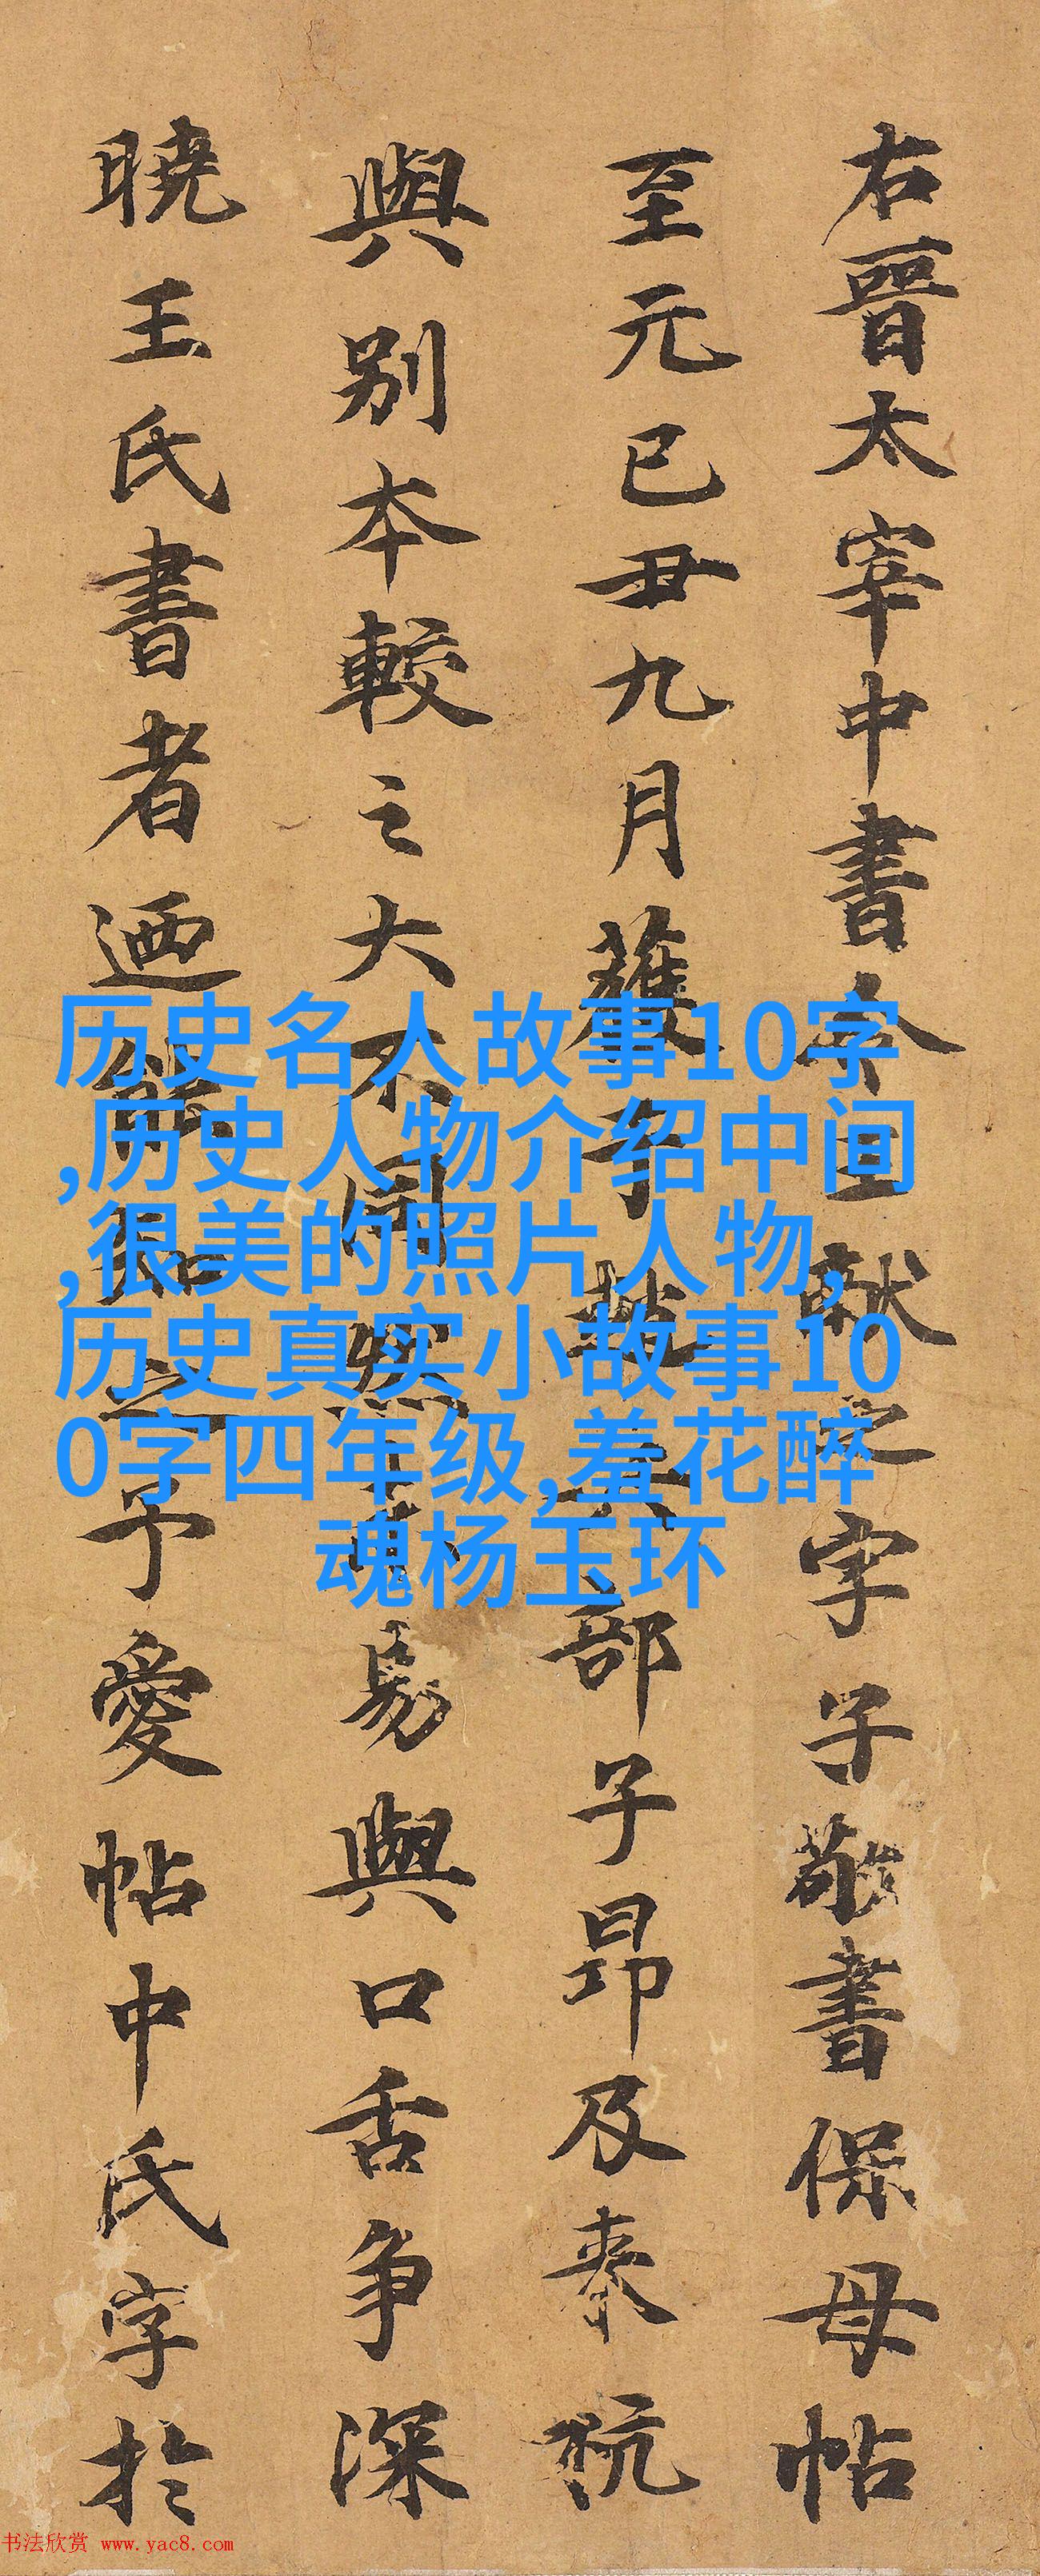 右晉太宰中書令王獻之字子敬書保母帖
至元己丑九月獲于趙兵部子昂及來杭
與別本較之大不同然未易與口舌爭深
曉王氏書者迺能知之予愛帖中氏字於
历史名人故事10字
,历史人物介绍中间
,很美的照片人物,
历史真实小故事10
0字四年级,羞花醉
魂杨玉环
书法欣赏 www.yac8.com